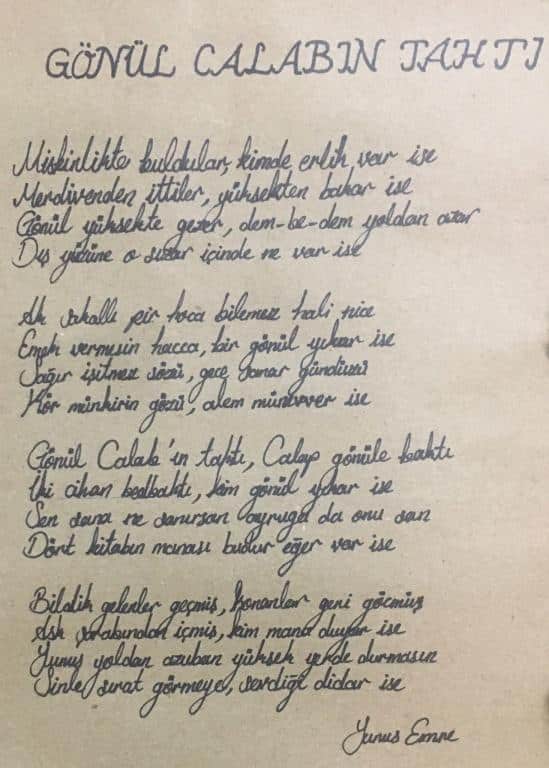 GÖNÜL CALABIN TAHTI
Miskinlikte buldular, kimde erlik var ise
Merdivenden ittiler, yüksekten bakar ise
Gönül yüksekte gezer, dem-be-dem yoldan azar
Dış yüzüne o sızar içinde ne var ise
Ak sakallı pir hoca bilemez hali nice
Emek vermesin hacca, bir gönül yıkar ise
Sağır işitmez sözü, gece sanar gündüzü
Kör münkirin gözü, alem münevver ise
Gönül Calab'ın tahtı, Calap gönüle baktı
İki cihan bedbahtı, kim gönül yıkar ise
Sen sana ne sanırsan ayruğa da onu san
Dört kitabın manası budur eğer var ise
Bildik gelenler geçmiş, konanlar geri göçmüş
Aşk şarabından içmiş, kim mana duyar ise
Yunus yoldan azuban yüksek yerde durmasın
Sinle sırat görmeye, sevdiği didar ise
Yunus Emre